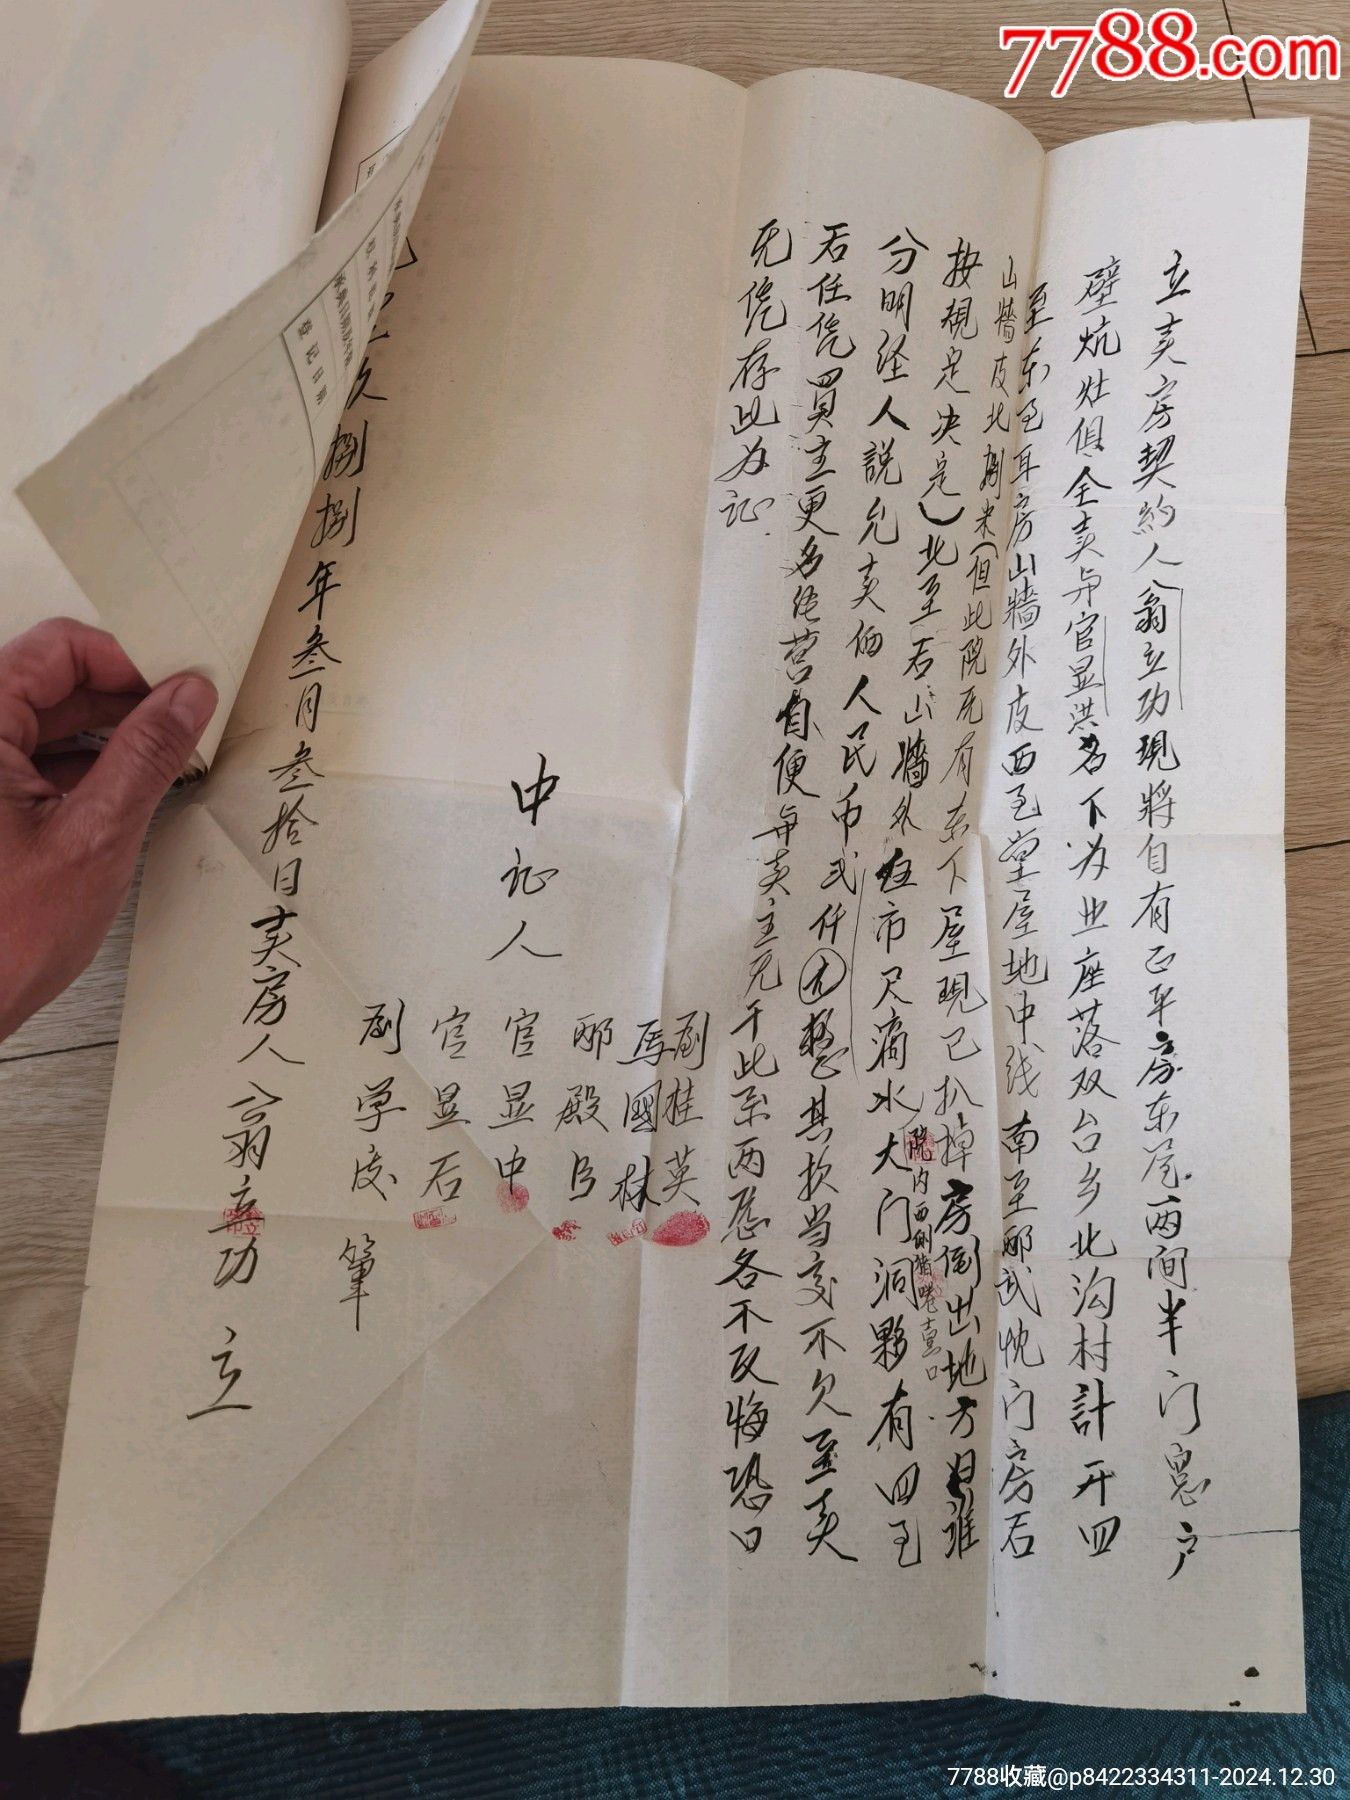 7788.com
立卖房契約人翁立功現將自有正平房东尾两间半门窓户
壁炕灶俱全卖与官显洪名下为业座落双台乡北沟村計开四
至东至耳房山墻外皮西至堂屋地中线南至邴武忱门房石
山墻皮北捌米(但此院旡有东下屋現已扒掉房倒出地方归谁
按規定决定)北至石山墻外 市尺滴水大门洞夥有四至
院内西侧 壹口
分明经人説允卖価人民币弍仟元整其款当交不欠至卖
后任凭買主更名经营自便与卖主无干此系两愿各不反悔恐口
无凭存此为证
中证人
刘桂英
馬國林
邴殿
官显中
官显石
刘学 筆
捌捌年叁月叁拾日卖房人翁立功 立
登记日期
7788收藏@p8422334311-2024.12.30